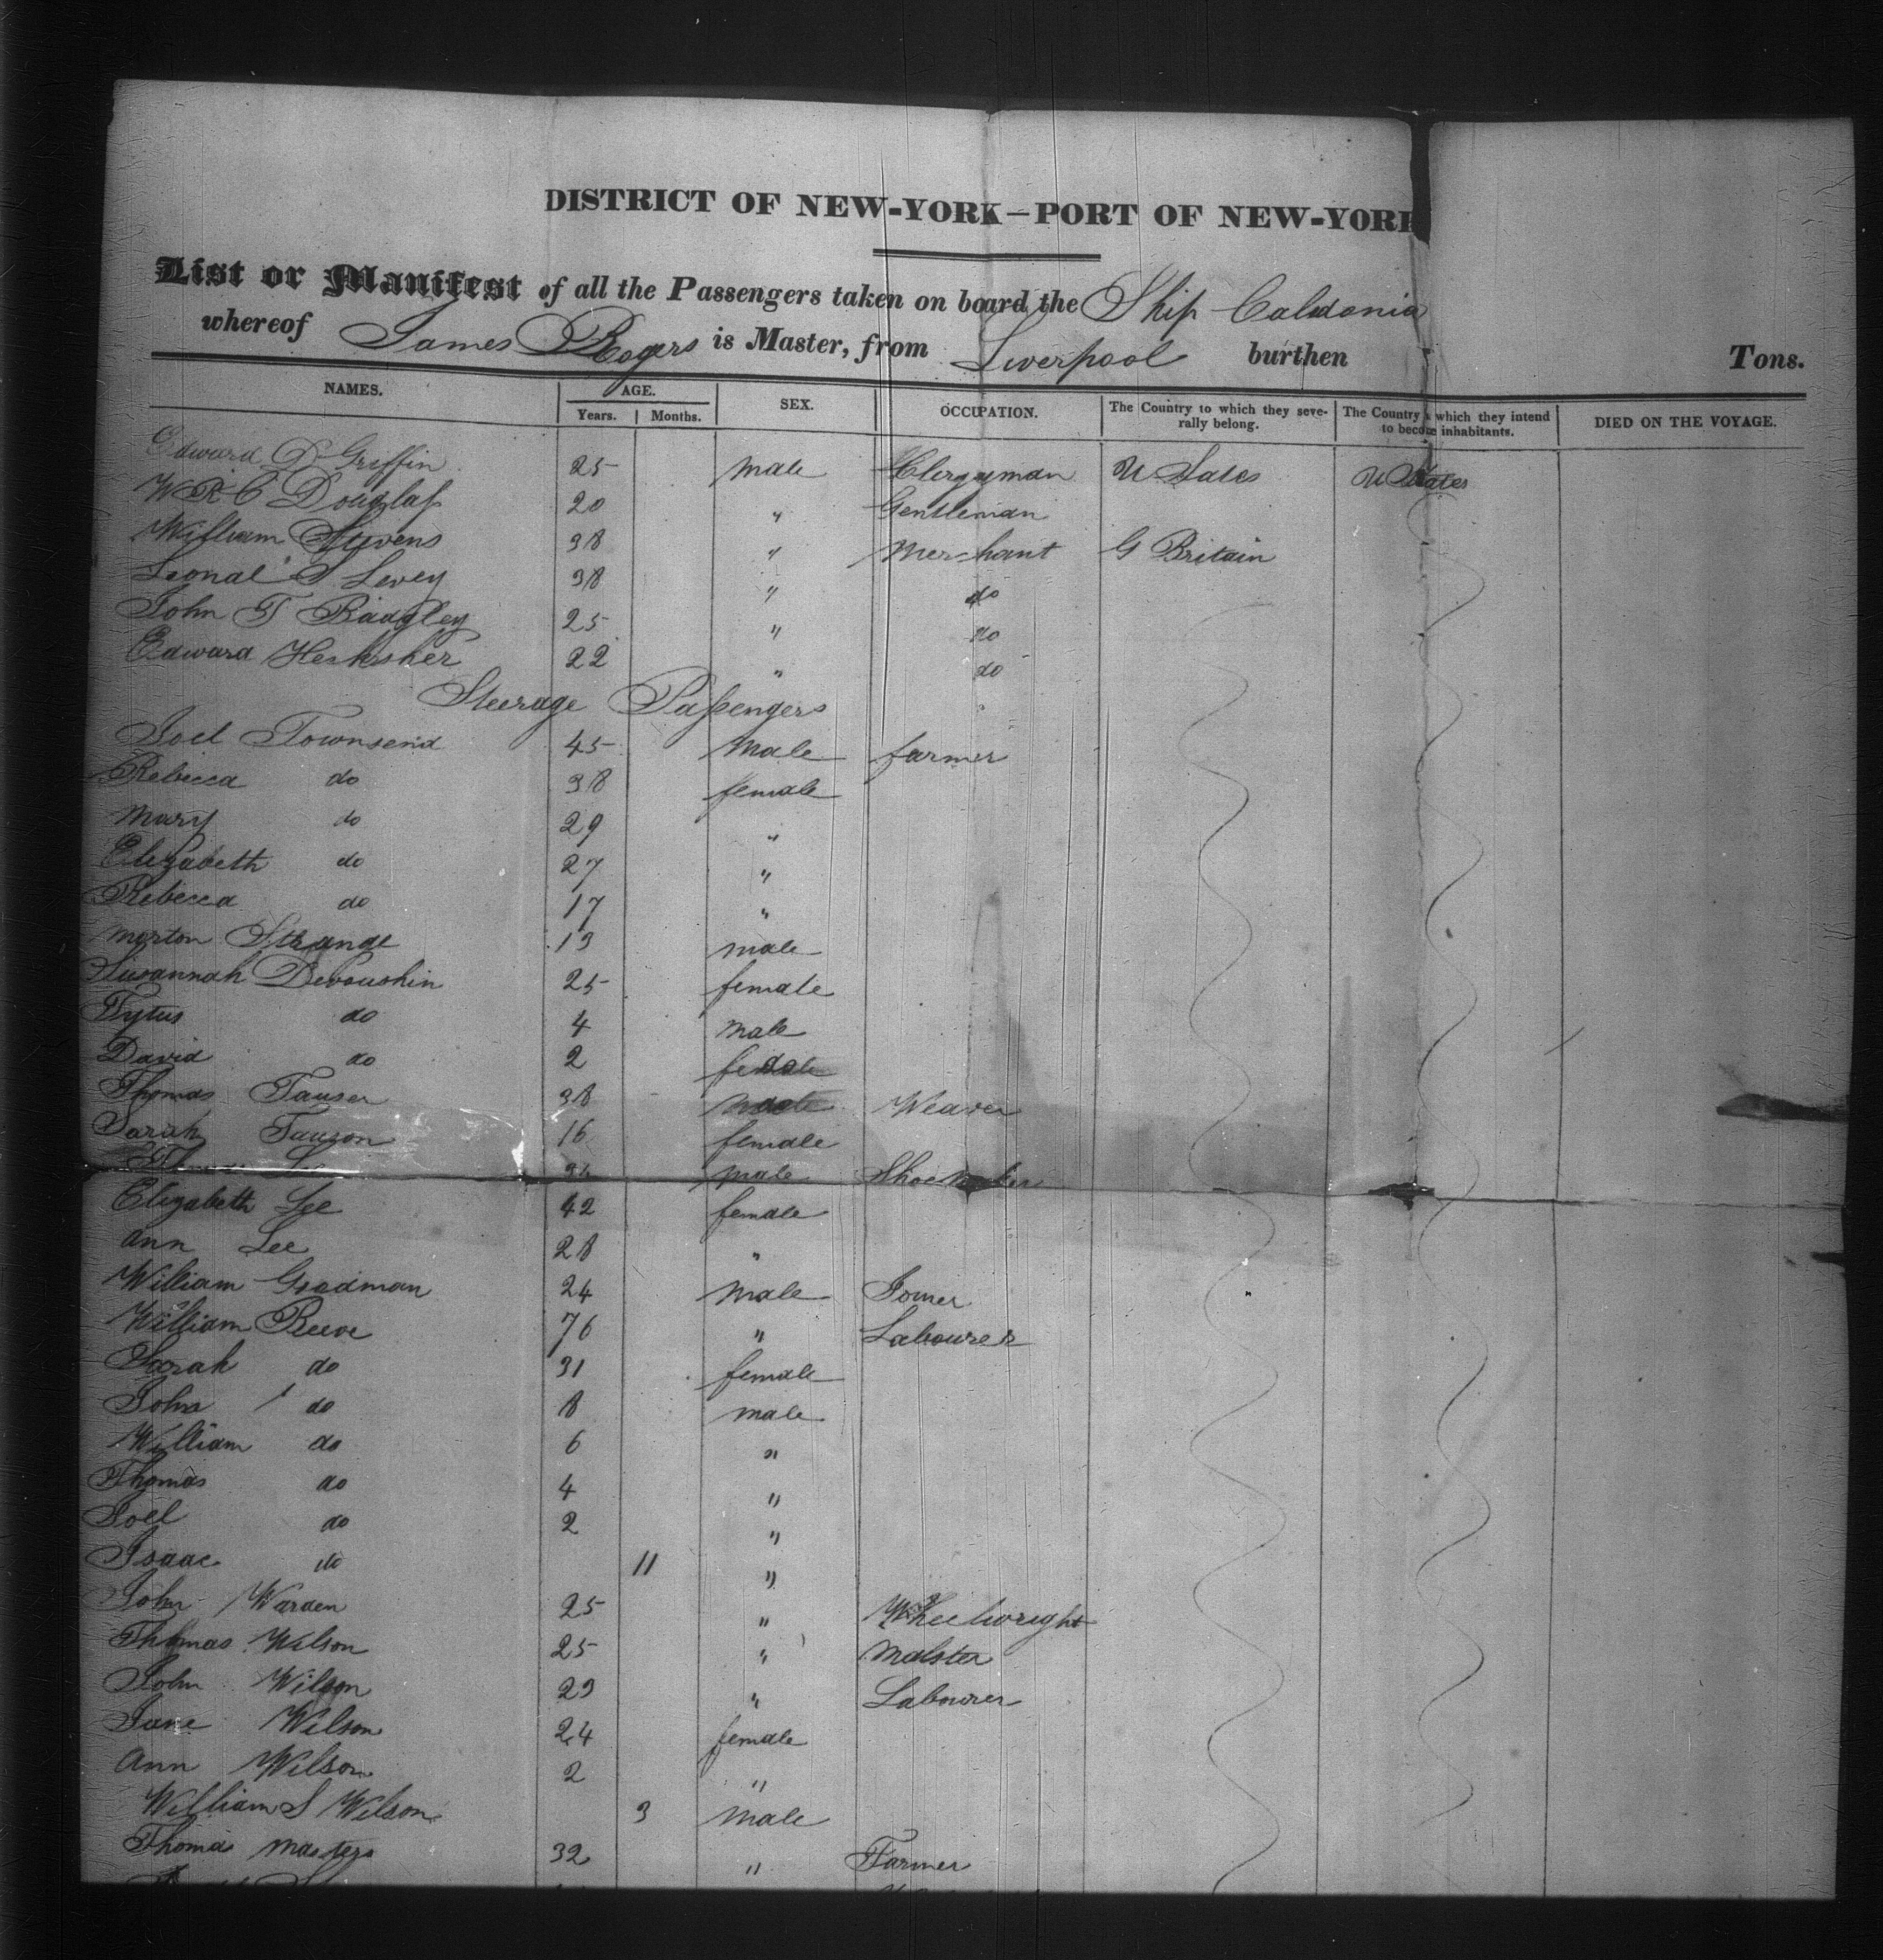 DISTRICT OF NEW-YORK—PORT OF NEW-YORK
List or Manifest of all the Passengers taken on board the Ship Caledonia
whereof James Rogers is Master, from Liverpool burthen Tons.
NAMES. AGE. Years. Months. SEX. OCCUPATION. The Country to which they severally belong. The Country which they intend to become inhabitants. DIED ON THE VOYAGE.
Edward D Griffin 25 male Clergyman U States U States
W R C Douglass 20 " Gentleman
William Stevens 38 " Merchant G Britain
Leonal S Levey 38 " do
John T Badgley 25 " do
Edward 22 " do
Steerage Passengers
Joel Townsend 45 Male farmer
Rebecca do 38 female
Mary do 29 "
Elizabeth do 27 "
Rebecca do 17 "
Morton Strange 13 male
Susannah Devoushin 25 female
Tytus do 4 male
David do 2 do
Thomas Tauser 38 male Weaver
Sarah Tauson 16 female
male Shoemaker
Elizabeth Lee 42 female
Ann Lee 28 "
William Goodman 24 Male Joiner
William Reeve 76 " Labourer
Sarah do 31 female
John do 8 male
William do 6 "
Thomas do 4 "
Joel do 2 "
Isaac do 11 "
John Warden 25 " Wheelwright
Thomas Wilson 25 " Malster
John Wilson 29 " Labourer
Jane Wilson 24 female
Ann Wilson 2 "
William S Wilson 3 Male
Thomas Masters 32 " Farmer